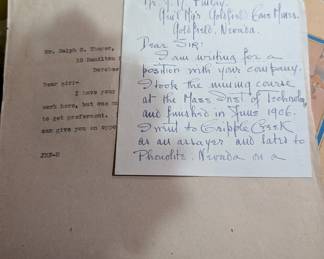 Mr. Ralph S. Thayer,
10 Hamilton
Dorchest
Dear Sir:-
I have your
work here, but was
to get preferment.
can give you an oppo
JRF-D
Mr. J. R. Finlay
Gen'l Mg'r Goldfield Cons Mines.
Goldfield, Nevada.
Dear Sir:
I am writing for a
position with your company.
I took the mining course
at the Mass Inst of Technology
and finished in June 1906.
I went to Cripple Creek
as an assayer and later to
Phonolite, Nevada on a